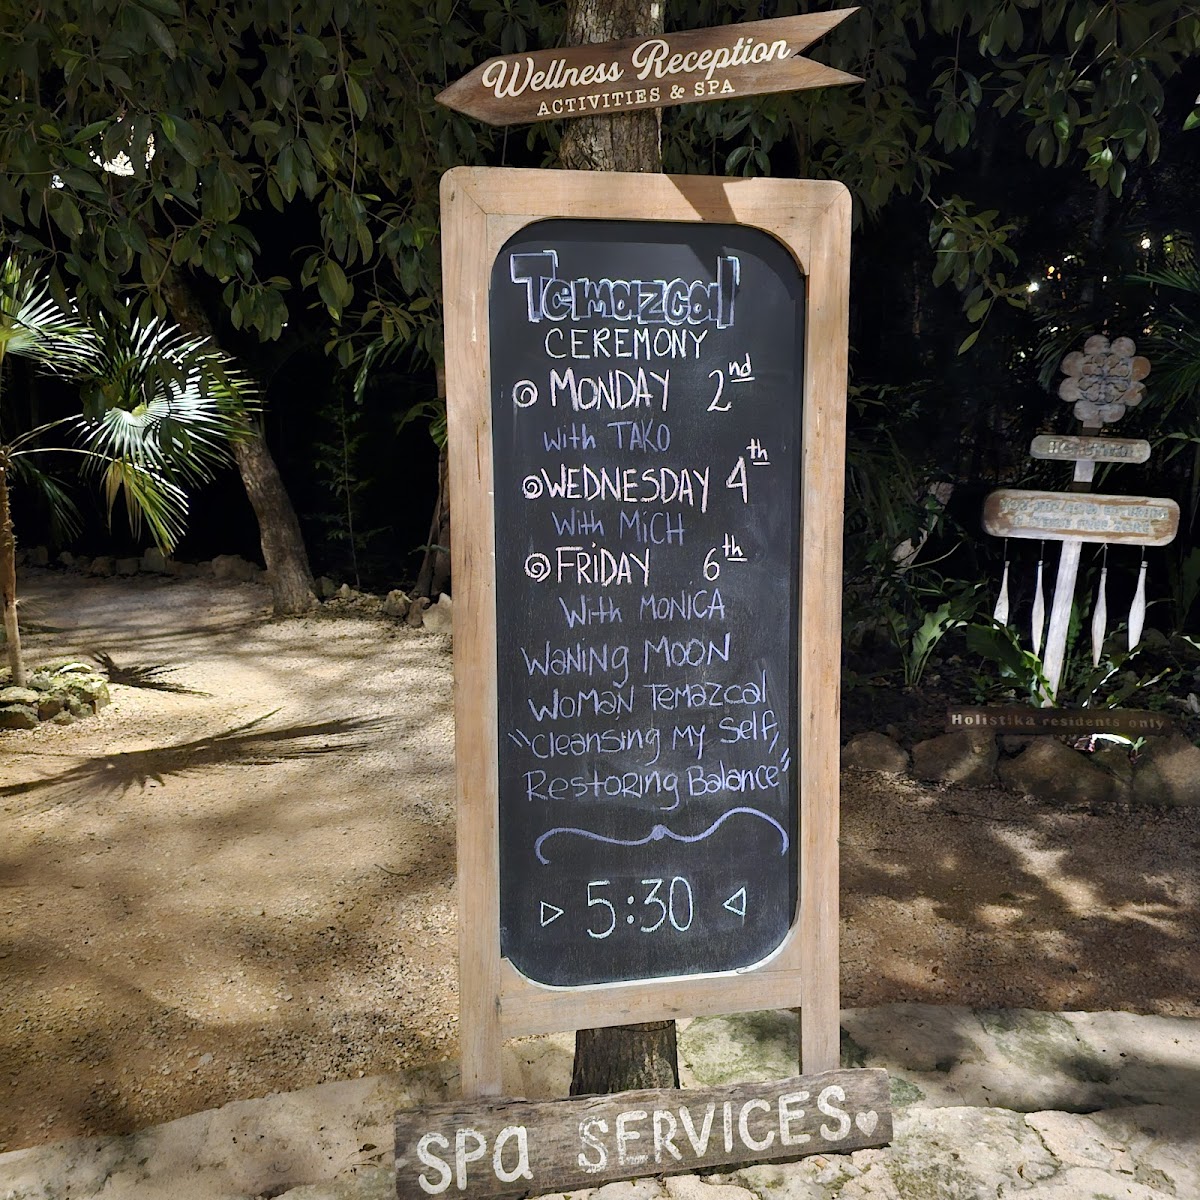 Wellness Reception
ACTIVITIES & SPA
Temazcal
CEREMONY
MONDAY 2nd
with TAKO
WEDNESDAY 4th
With MiCH
FRiDAY 6th
With MONiCA
WaNiNg MOON
WomaN Temazcal
"Cleansing My Self,
Restoring Balance"
5:30
SPa SERVICES
Holistika residents only